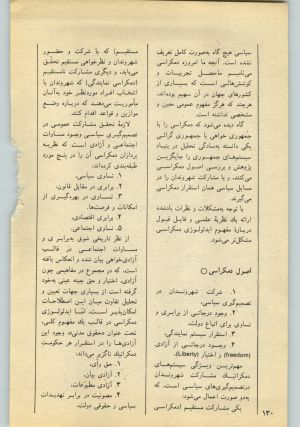 سیاسی هیچ گاه به‌صورت کامل تعریف
نشده است. آنچه ما امروزه دمکراسی
می‌نامیم ماحصل تجربیات و
کوشش‌هائی است که بسیاری از
کشورهای جهان در آن سهیم بوده‌اند،
هرچند که هرگز مفهوم عمومی معین و
مشخصی نداشته است.
گاه دیده می‌شود که دمکراسی را با
جمهوری خواهی یا جمهوری گرائی
یکی دانسته به‌سادگی تحلیل در بنیاد
سیستم‌های جمهوری را جایگزین
پژوهش و بررسی اصول دمکراسی
می‌کنند، و یا مشارکت شهروندان را در
مسایل سیاسی همان استقرار دمکراسی
می‌دانند.
با توجه به‌مشکلات و نظرات یادشده
ارائه یک نظریهٔ علمی و قابل قبول
دربارهٔ مفهوم ایدئولوژی دمکراسی
مشکل‌تر می‌شود.
اصول دمکراسی
۱. شرکت شهروندان در
تصمیم‌گیری سیاسی.
۲. وجود درجاتی از برابری و
تساوی برای اتباع دولت.
۳. استقرار سیستم نمایندگی.
۴. وجود درجاتی از آزادی
(freedom) و اختیار (Liberty).
مهم‌ترین ویژگی سیستم‌های
دمکراتیک مشارکت شهروندان
در‌تصمیم‌گیری‌های سیاسی است، که
به‌دو صورت اعمال می‌شود:
یکی مشارکت مستقیم (دمکراسی
۱۳۰
مستقیم) که با شرکت و حضور
شهروندان و نظرخواهی مستقیم تحقق
می‌یابد، و دیگری مشارکت نامستقیم
(دمکراسی نمایندگی) که شهروندان با
انتخاب افراد موردنظر خود به‌آنان
مأموریت می‌دهند که درباره وضع
موازین و قواعد اقدام کنند.
لازمهٔ تحقق مشارکت عمومی در
تصمیم‌گیری سیاسی وجود مساوات
اجتماعی و آزادی است که نظریه
پردازان دمکراسی آن را در پنج مورد
طبقه‌بندی کرده‌اند:
۱. تساوی سیاسی.
۲. برابری در مقابل قانون.
۳. تساوی در بهره‌گیری از
امکانات و فرصت‌ها.
۴. برابری اقتصادی.
۵. تساوی اجتماعی.
از نظر تاریخی شوق به‌برابری و
مساوات اجتماعی در قالب
آزادی‌خواهی بیان شده و انعکاس یافته
است، که در مجموع در مفاهیمی چون
آزادی، اختیار و حق جنبه عینی به‌خود
گرفته است. از بسیاری جهات تعیین و
تحلیل تفاوت میان این اصطلاحات
امکان‌پذیر است، امّا ایدئولوژی
دمکراسی در قالب یک مفهوم کلی،
تحت عنوان «حقوق مدنی»، وجود این
آزادی‌ها را در استقرار هر حکومت
دمکراتیک ناگزیر می‌داند:
۱. حق رأی،
۲. آزادی بیان،
۳. آزادی مطبوعات،
۴. مصونیت در برابر تهدیدات
سیاسی و حقوقی دولت.